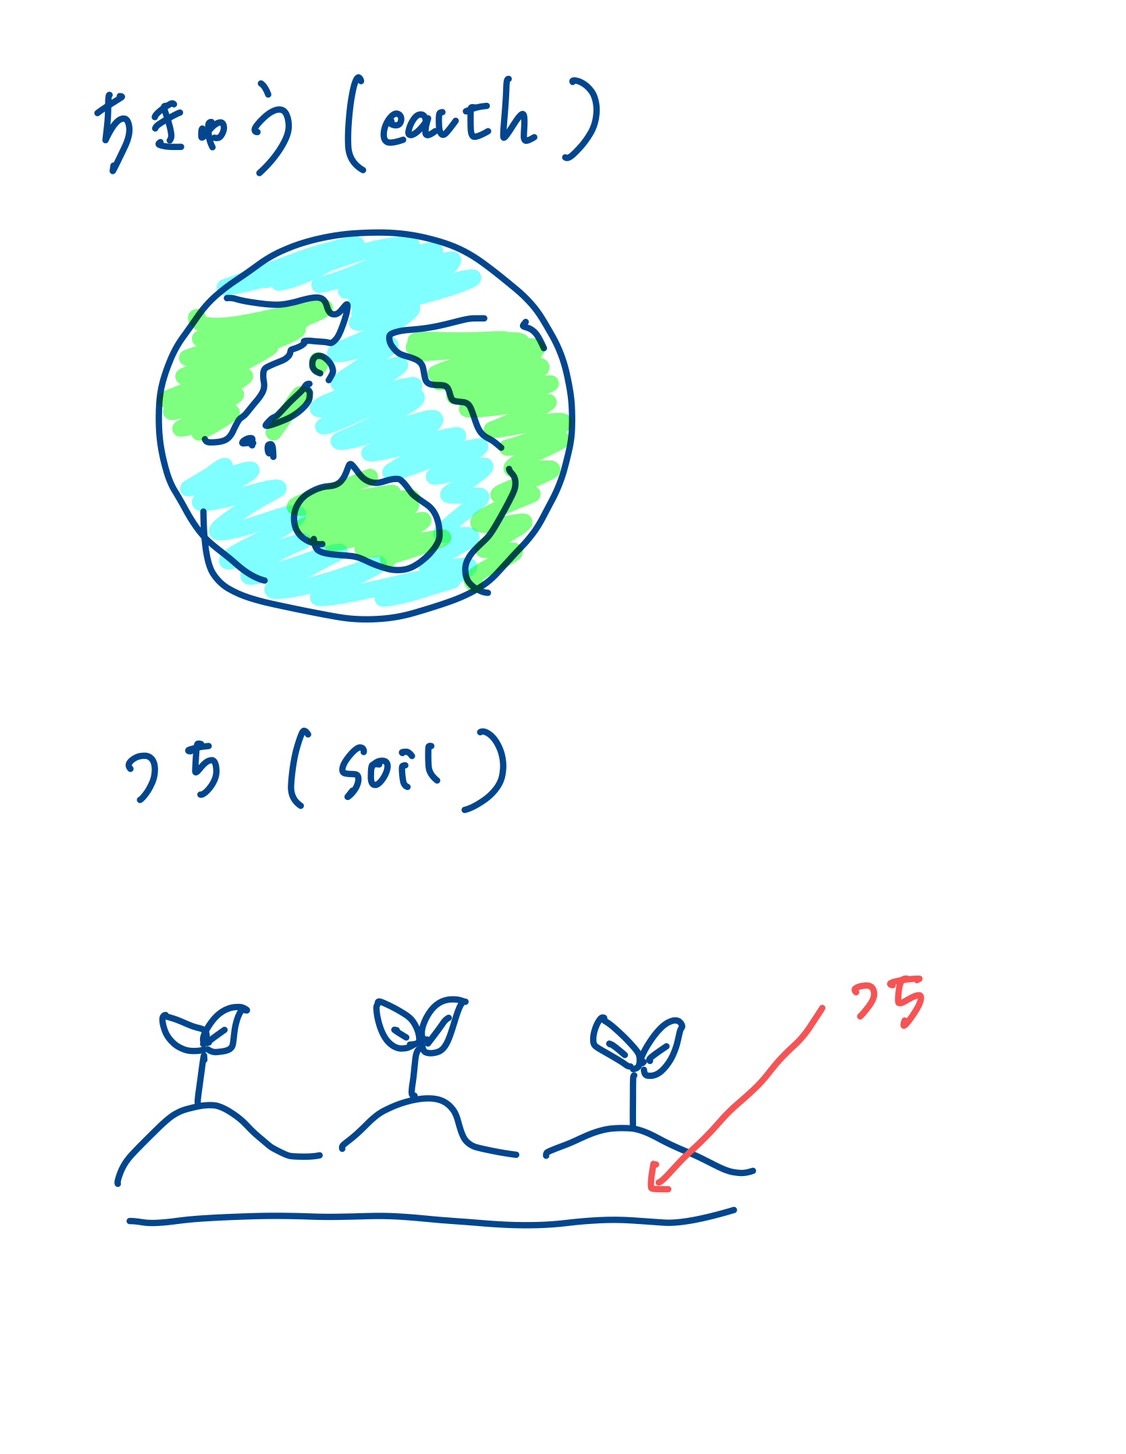 ちきゅう (earth)
つち (soil)
つち